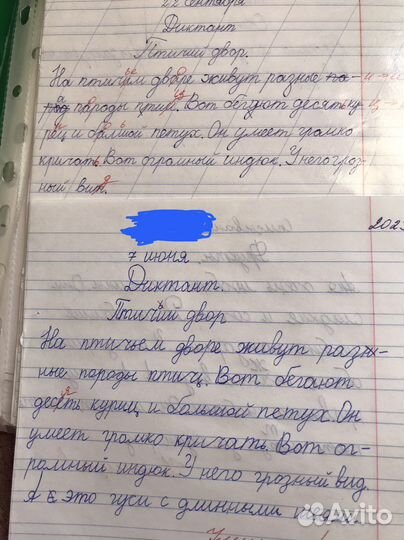 22 сентября
Диктант
Птичий двор.
На птичьем дворе живут разные
породы птиц. Вот бегают десять ку-
риц и болшой петух. Он умеет громко
кричать. Вот огромный индюк. У него гроз-
ный вид.
202
7 июня
Диктант.
Птичьий двор
На птичьем дворе живут разны-
ные породы птиц. Вот бегают
десеть куриц и большой петух. Он
умеет громко кричать. Вот ог-
ромный индюк. У него грозный вид.
А это гуси с длинными
Avito